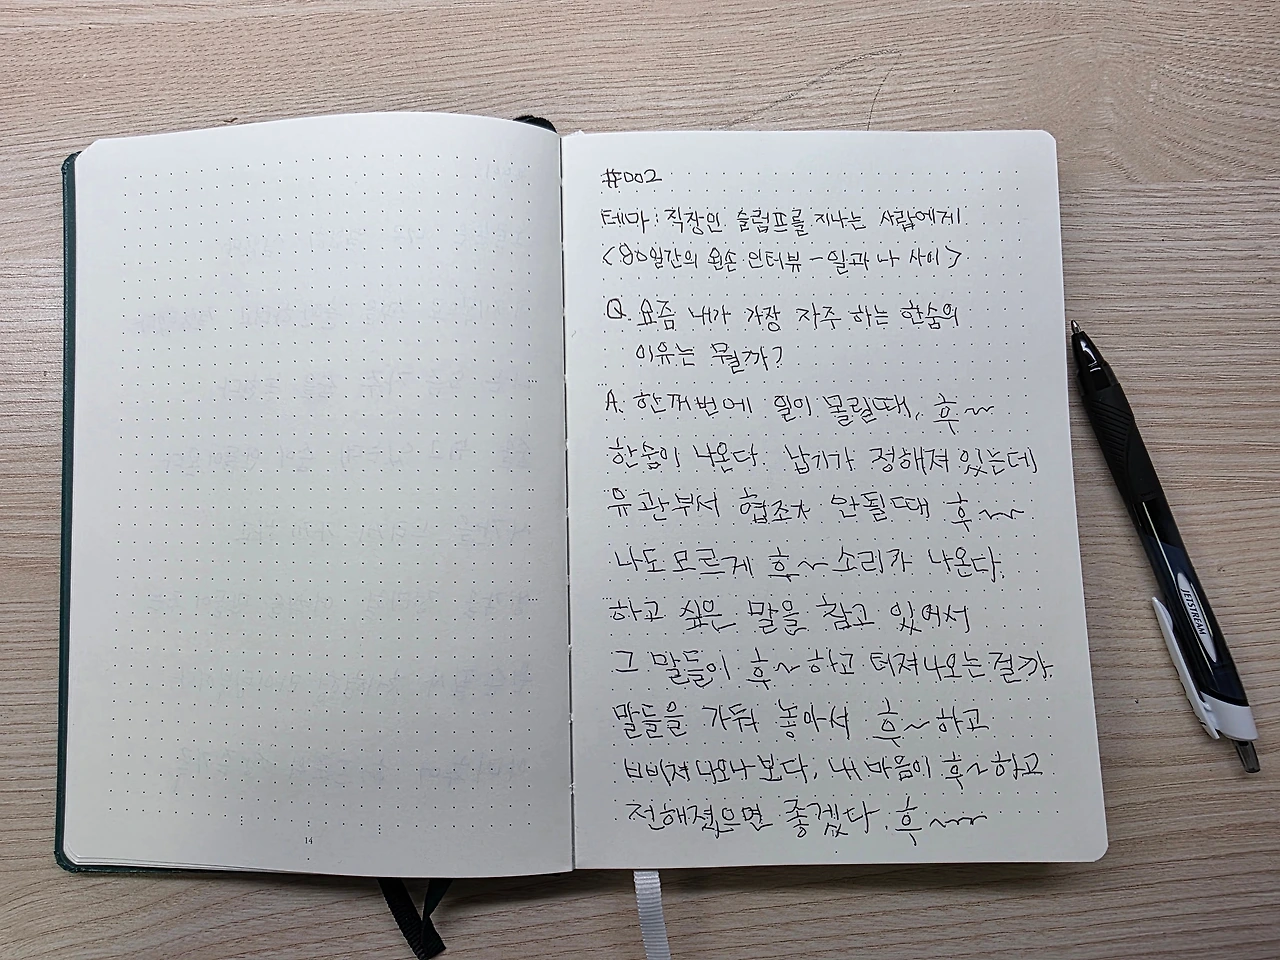 #002
테마: 직장인 슬럼프를 지나는 사람에게
<80일간의 왼손 인터뷰 - 일과 나 사이>
Q. 요즘 내가 가장 자주 하는 한숨의
이유는 뭘까?
A. 한꺼번에 일이 몰릴때, 후~~
한숨이 나온다. 납기가 정해져 있는데
유관부서 협조가 안될때 후~~
나도 모르게 후~ 소리가 나온다.
하고 싶은 말을 참고 있어서
그 말들이 후~ 하고 터져나오는걸까.
말들을 가둬 놓아서 후~ 하고
삐져 나오나 보다. 내 마음이 후~ 하고
전해졌으면 좋겠다. 후~~~
14
JETSTREAM